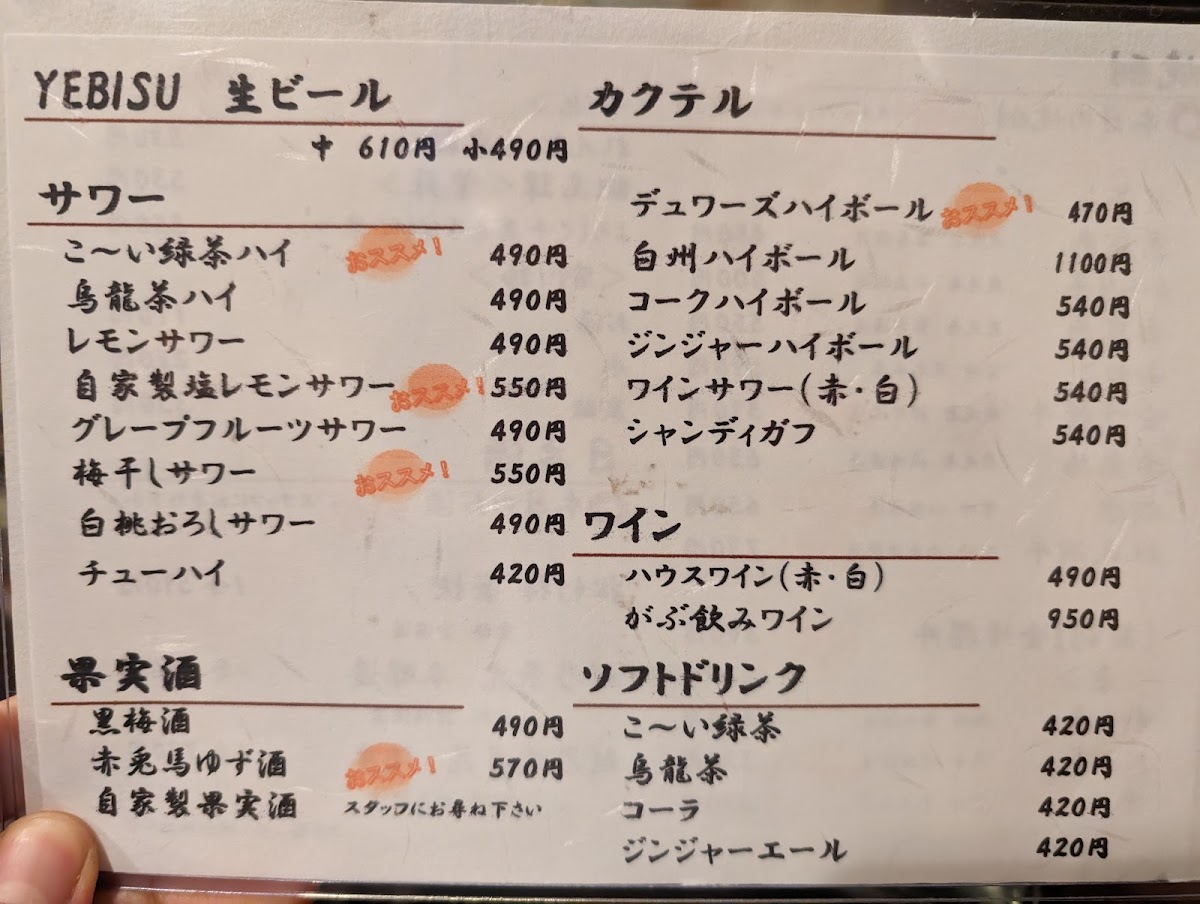 YEBISU 生ビール
中 610円 小490円
サワー
こ～い緑茶ハイ おススメ! 490円
烏龍茶ハイ 490円
レモンサワー 490円
自家製塩レモンサワー おススメ! 550円
グレープフルーツサワー 490円
梅干しサワー おススメ! 550円
白桃おろしサワー 490円
チューハイ 420円
果実酒
黒梅酒 490円
赤兎馬ゆず酒 おススメ! 570円
自家製果実酒 スタッフにお尋ね下さい
カクテル
デュワーズハイボール おススメ! 470円
白州ハイボール 1100円
コークハイボール 540円
ジンジャーハイボール 540円
ワインサワー(赤・白) 540円
シャンディガフ 540円
ワイン
ハウスワイン(赤・白) 490円
がぶ飲みワイン 950円
ソフトドリンク
こ～い緑茶 420円
烏龍茶 420円
コーラ 420円
ジンジャーエール 420円